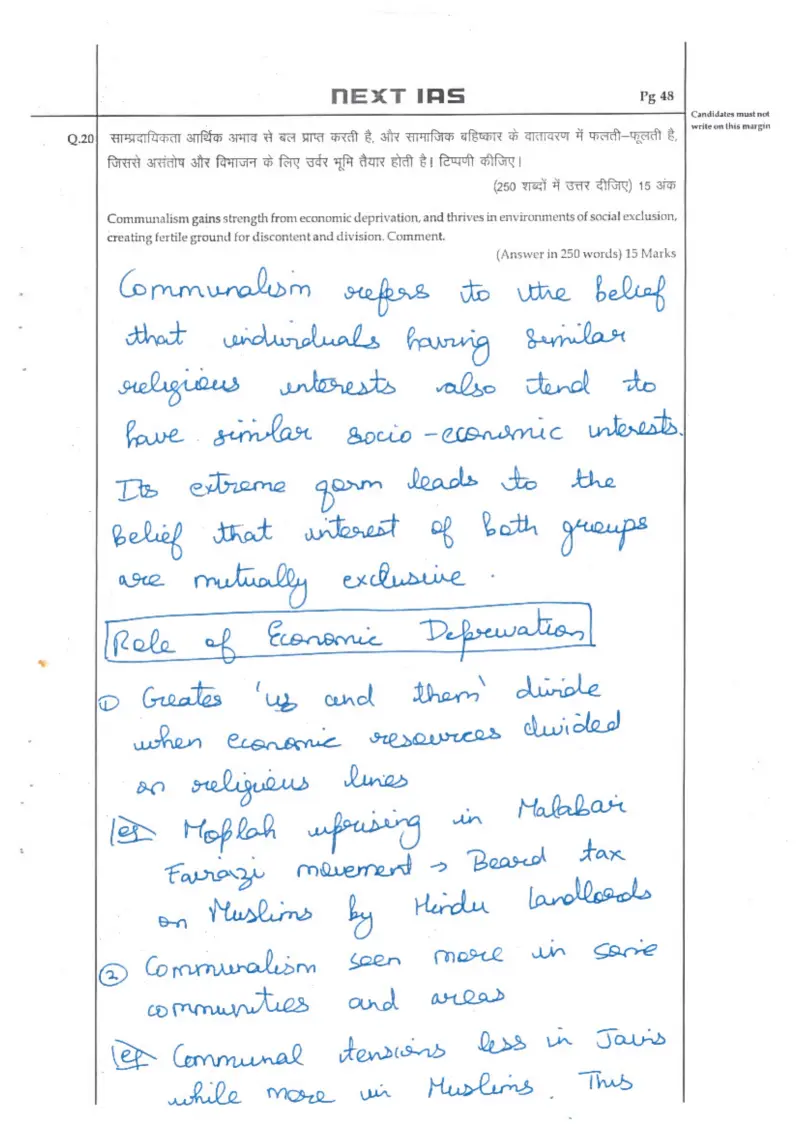 NEXT IAS
Pg 48
Candidates must not
write on this margin
Q.20 साम्प्रदायिकता आर्थिक अभाव से बल प्राप्त करती है, और सामाजिक बहिष्कार के वातावरण में फलती-फूलती है,
जिससे असंतोष और विभाजन के लिए उर्वर भूमि तैयार होती है। टिप्पणी कीजिए।
(250 शब्दों में उत्तर दीजिए) 15 अंक
Communalism gains strength from economic deprivation, and thrives in environments of social exclusion,
creating fertile ground for discontent and division. Comment.
(Answer in 250 words) 15 Marks
Communalism refers to the belief
that individuals having similar
religious interests also tend to
have similar socio-economic interests.
Its extreme form leads to the
belief that interest of both groups
are mutually exclusive.
Role of Economic Deprivation
① Creates 'us and them' divide
when economic resources divided
on religious lines
eg Moplah uprising in Malabar
Fairazi movement → Beard tax
on Muslims by Hindu landloads
② Communalism seen more in some
communities and areas
eg Communal tensions less in Jains
while more in Muslims. This